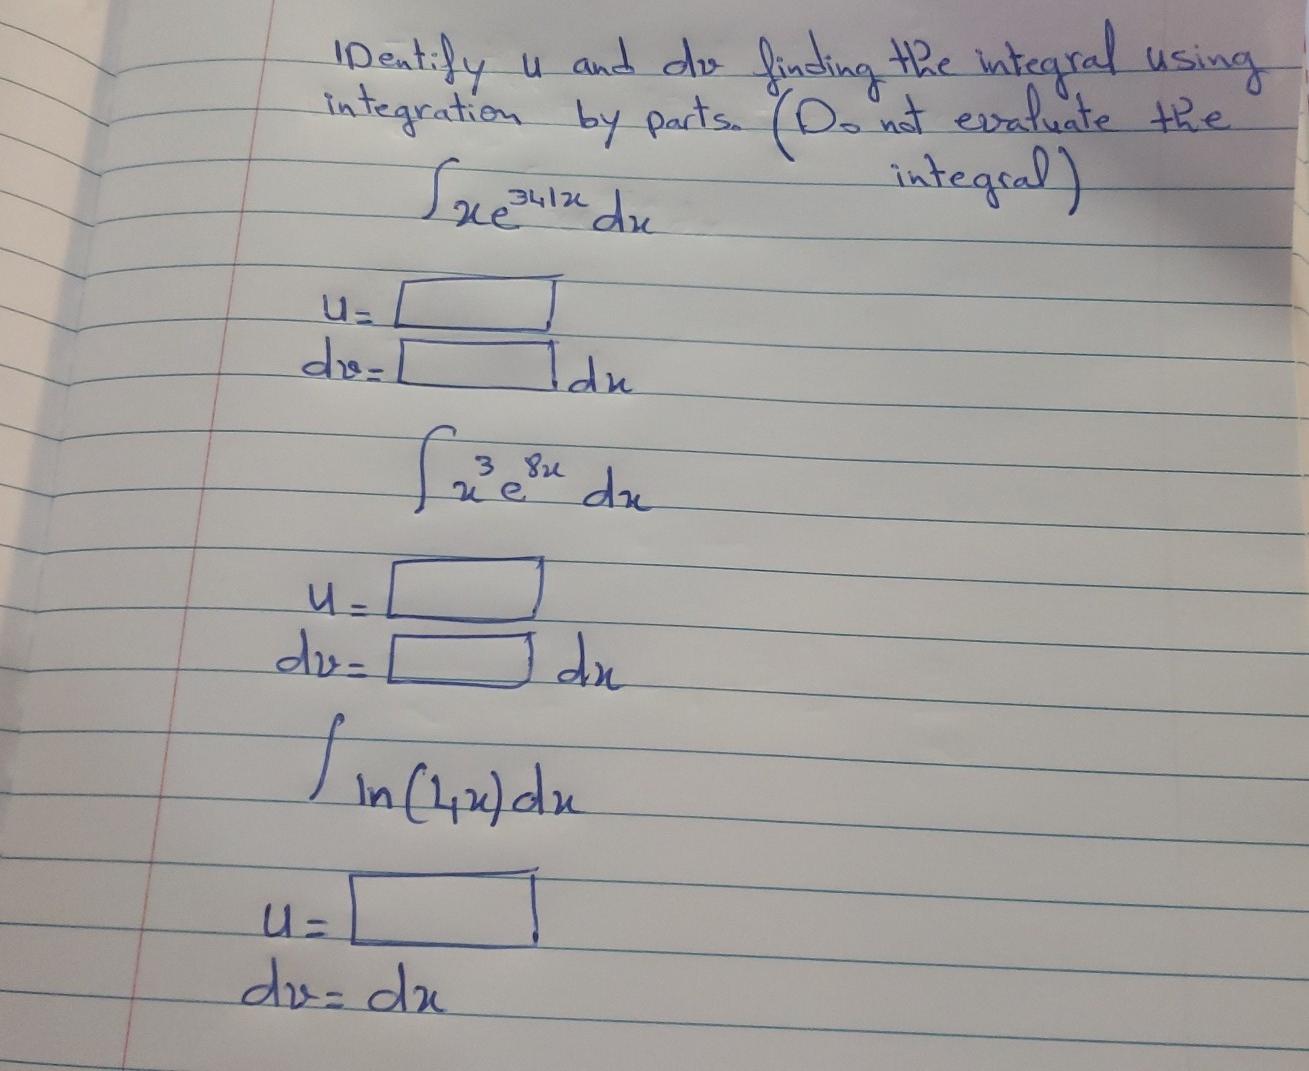 IDentify u and dv finding the integral using
integration by parts. (Do not evaluate the
integral)
∫xe^341x dx
u=
dv= dx
∫x^3 e^8x dx
u=
dv= dx
∫ln(4x)dx
u=
dv= dx